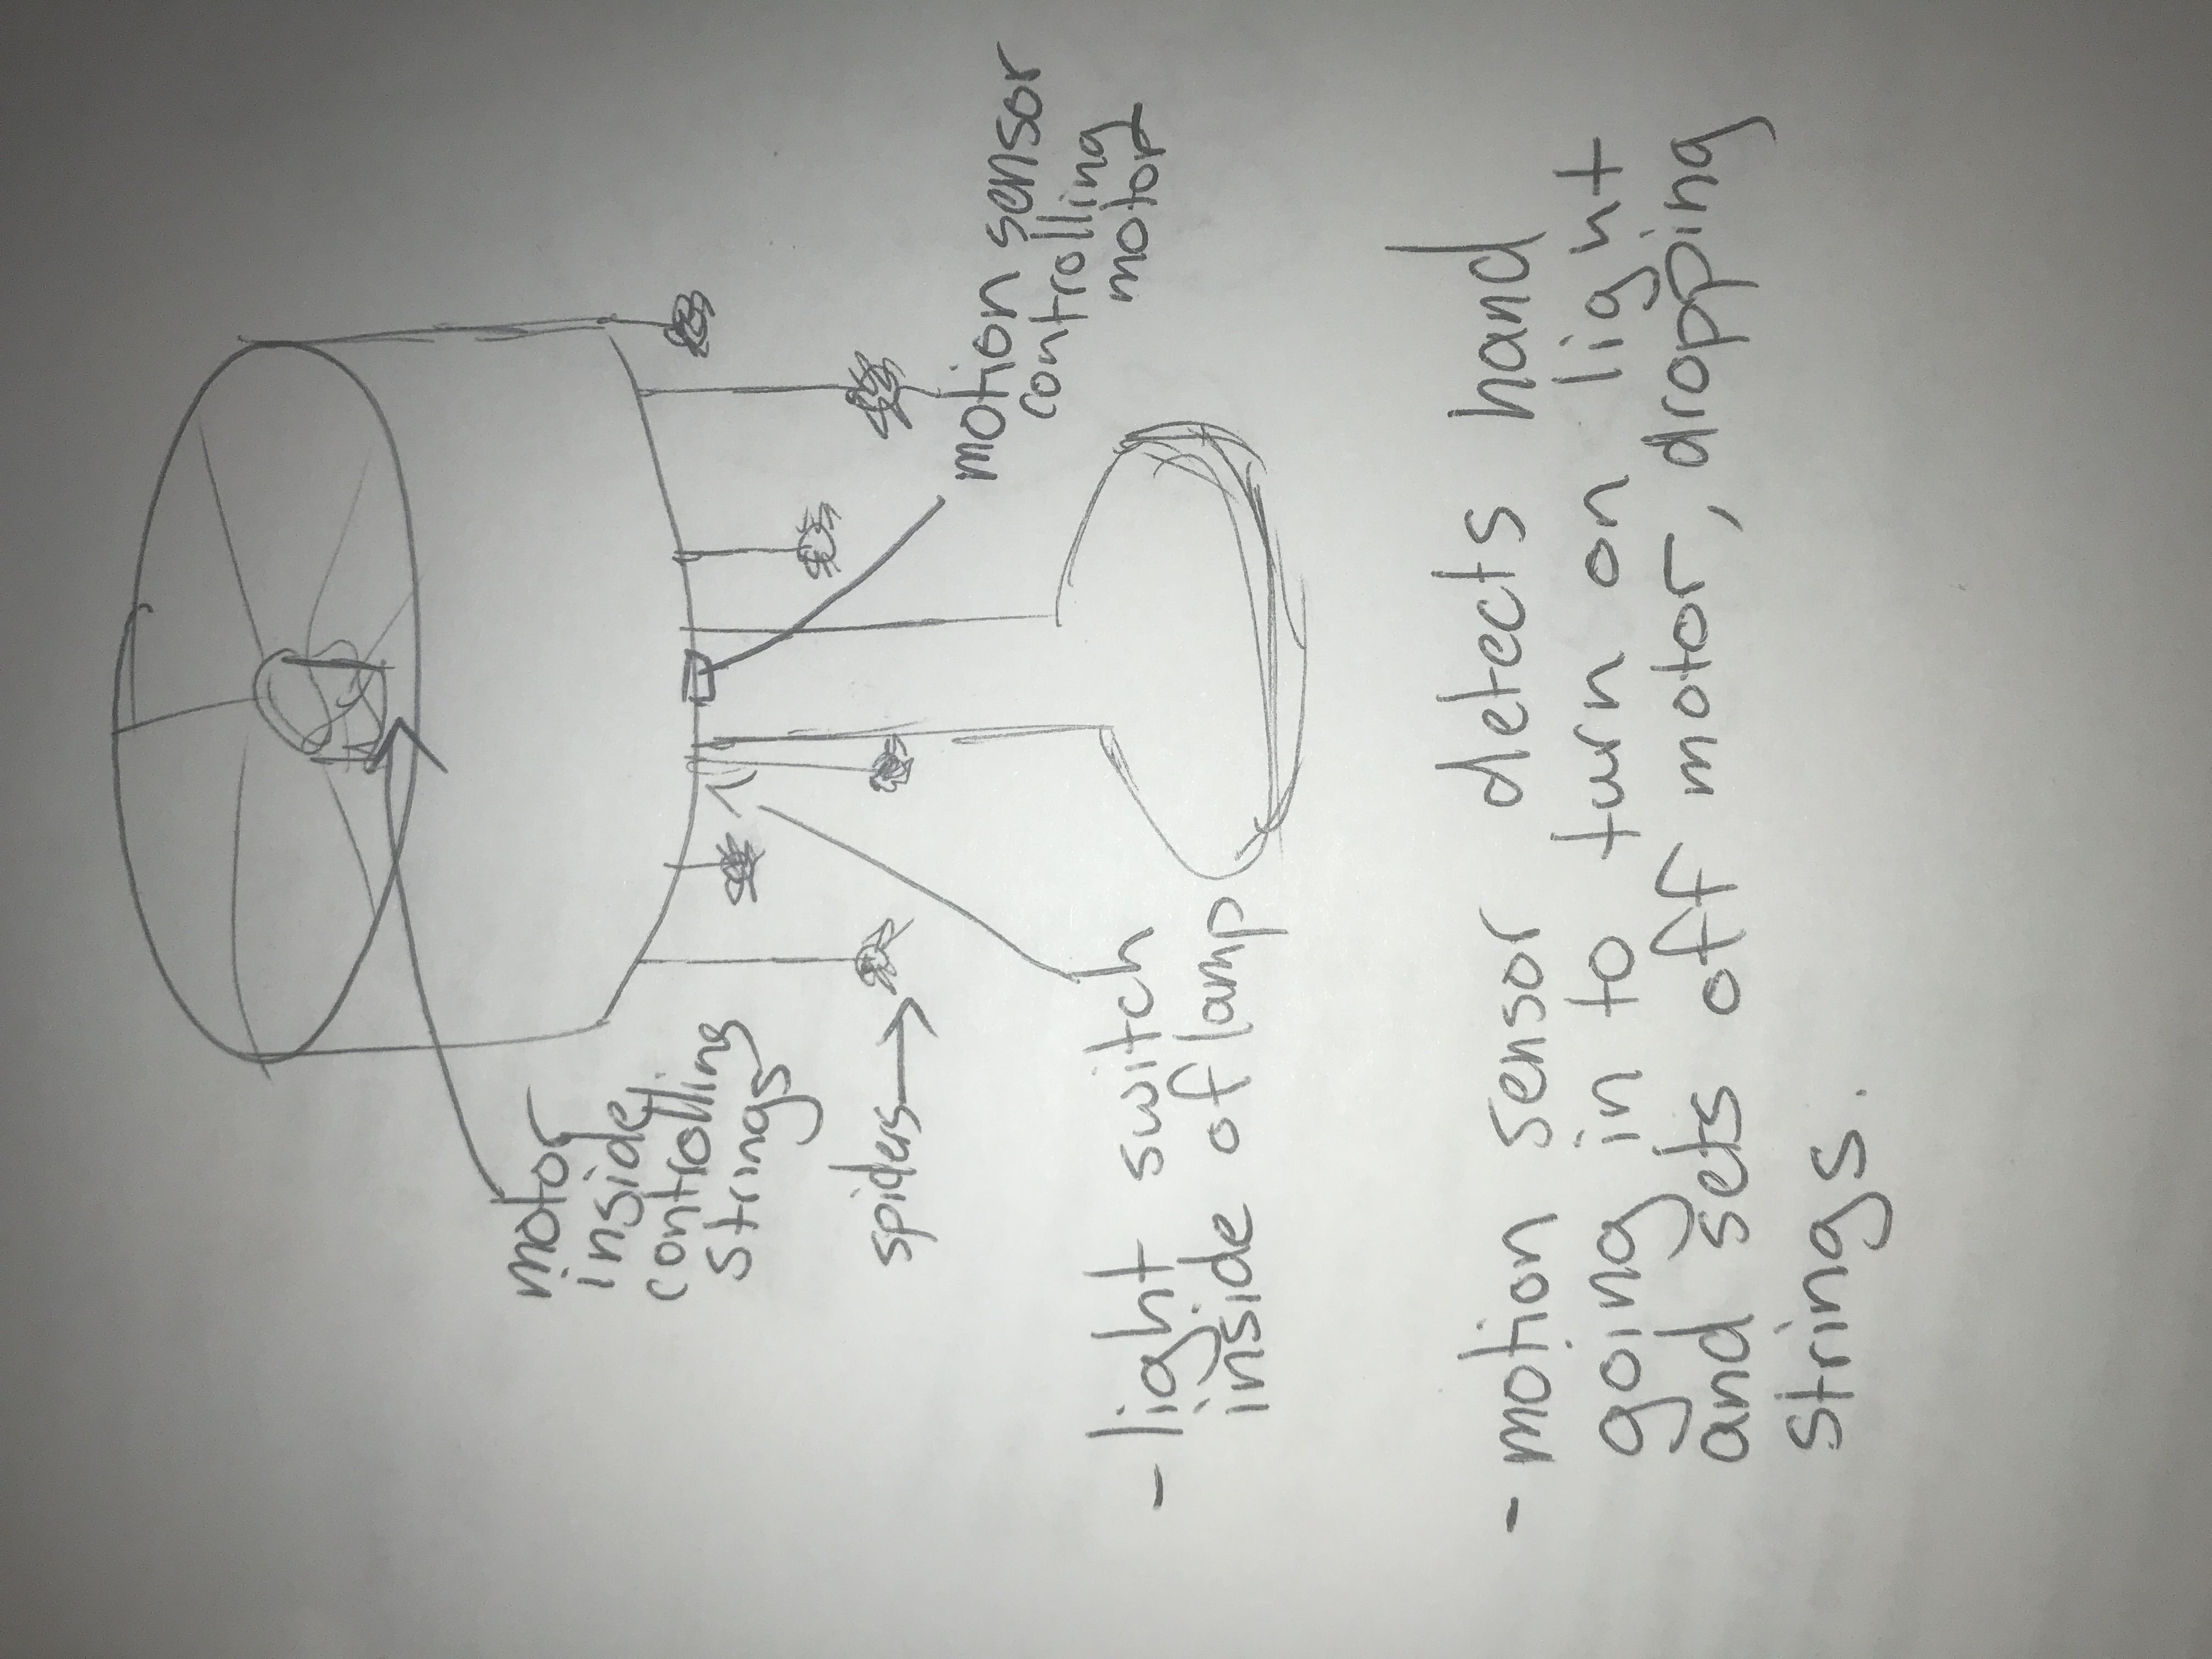 motor
inside
controlling
strings
spiders
motion sensor
controlling
motor
- light switch
inside of lamp
- motion sensor detects hand
going in to turn on light
and sets off motor, dropping
strings.